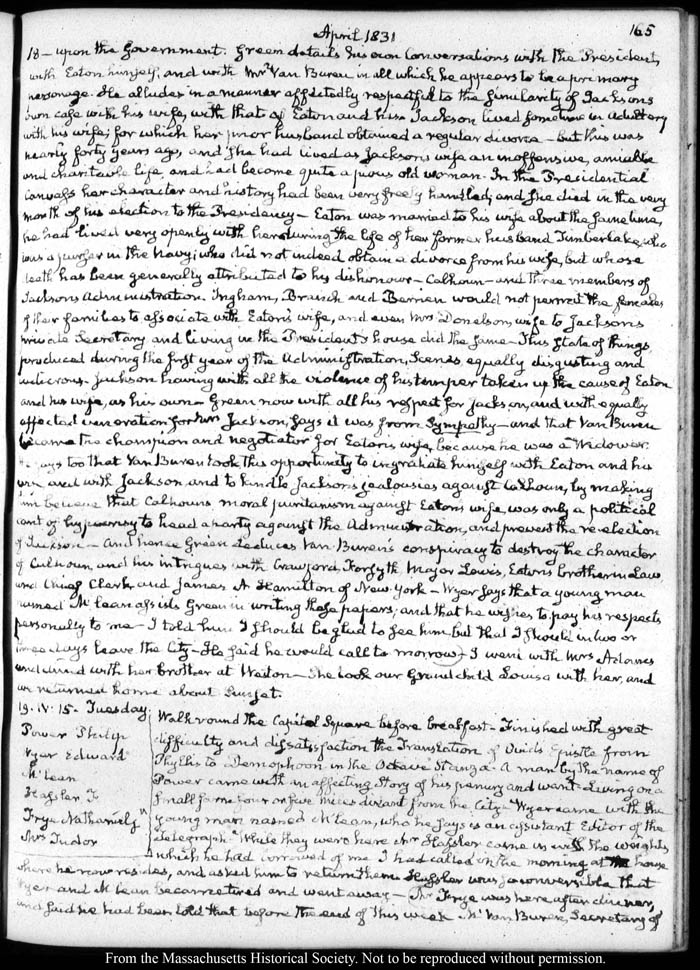 April 1831
165
18 — upon the Government. Green details his own Conversations with the President,
with Eaton himself, and with Mr. Van Buren in all which he appears to be a primary
personage. He alludes in a manner affectedly respectful to the similarity of Jackson's
own case with his wife, with that of Eaton and his. Jackson lived sometime in adultery
with his wife; for which her prior husband obtained a regular divorce — but this was
nearly forty years ago, and she had lived as Jackson's wife an inoffensive, amiable
and charitable life, and had become quite a pious old woman. In the Presidential
canvass her character and history had been very freely handled; and she died in the very
month of his election to the Presidency — Eaton was married to his wife about the same time,
he had lived very openly with her during the life of her former husband Timberlake, who
was a purser in the Navy; who did not indeed obtain a divorce from his wife, but whose
death has been generally attributed to his dishonour — Calhoun — and three members of
Jackson's Administration. Ingham, Branch and Berrien would not permit the females
of their families to associate with Eaton's wife, and even Mrs Donelson, wife to Jackson's
private Secretary and living in the President's house did the same — This state of things,
produced during the first year of the Administration, Scenes equally disgusting and
ludicrous. Jackson having with all the violence of his temper taken up the cause of Eaton
and his wife, as his own — Green now with all his respect for Jackson, and with equally
affected veneration for Mrs Jackson, says it was from Sympathy — and that Van Buren
became the champion and negotiator for Eaton's wife, because he was a Widower.
He says too that Van Buren took this opportunity to ingratiate himself with Eaton and his
wife and with Jackson, and to kindle Jackson's jealousies against Calhoun, by making
him believe that Calhoun's moral puritanism against Eaton's wife, was only a political
cant of hypocrisy to head a party against the Administration, and prevent the re-election
of Jackson — And hence Green deduces Van Buren's conspiracy to destroy the character
of Calhoun, and his intrigues with Crawford, Forsyth, Major Lewis, Eaton's brother in Law
and Chief Clerk, and James A Hamilton of New-York — Wyer says that a young man
named McLean assists Green in writing these papers, and that he wishes to pay his respects
personally to me — I told him I should be glad to see him but that I should in two or
three days leave the City — He said he would call to morrow — I went with Mrs Adams
and dined with her brother at Weston — She took our Grandchild Louisa with her, and
we returned home about Sunset.
19. IV. 15. Tuesday.
Power Philip
Wyer Edward
McLean
Hassler F
Frye Nathaniel Jr
Mrs Tudor
Walk round the Capitol Square before breakfast — Finished with great
difficulty and dissatisfaction the Translation of Ovid's Epistle from
Phyllis to Demophoon in the Octave Stanza. A man by the name of
Power came with an affecting Story of his penury and want — Living on a
small farm four or five miles distant from the City — Wyer came with the
young man named McLean, who he says is an assistant Editor of the
Telegraph. While they were here Mr Hassler came in with the weights
which he had borrowed of me I had called in the morning at the house
where he now resides, and asked him to return them. Hassler was so conversible that
Wyer and McLean became tired and went away — Mr Frye was here after dinner,
and said he had been told that before the end of this week Mr Van Buren, Secretary of
From the Massachusetts Historical Society. Not to be reproduced without permission.